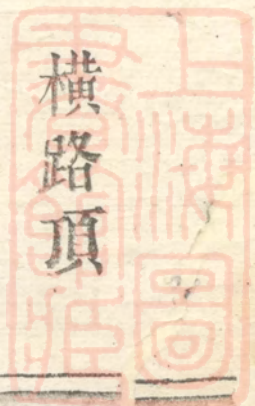 橫路頂
上海圖
書館藏